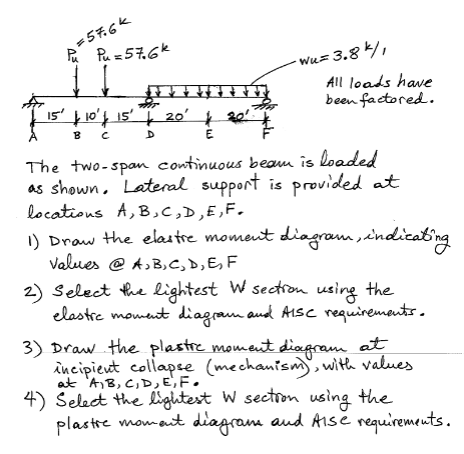 Pu=57.6k Pu=57.6k
wu=3.8k/'
All loads have
been factored.
15' 10' 15' 20' 20'
A B C D E F
The two-span continuous beam is loaded
as shown. Lateral support is provided at
locations A,B,C,D,E,F.
1) Draw the elastic moment diagram, indicating
values @ A,B,C,D,E,F
2) Select the lightest W section using the
elastic moment diagram and AISC requirements.
3) Draw the plastic moment diagram at
incipient collapse (mechanism), with values
at A,B,C,D,E,F.
4) Select the lightest W section using the
plastic moment diagram and AISC requirements.